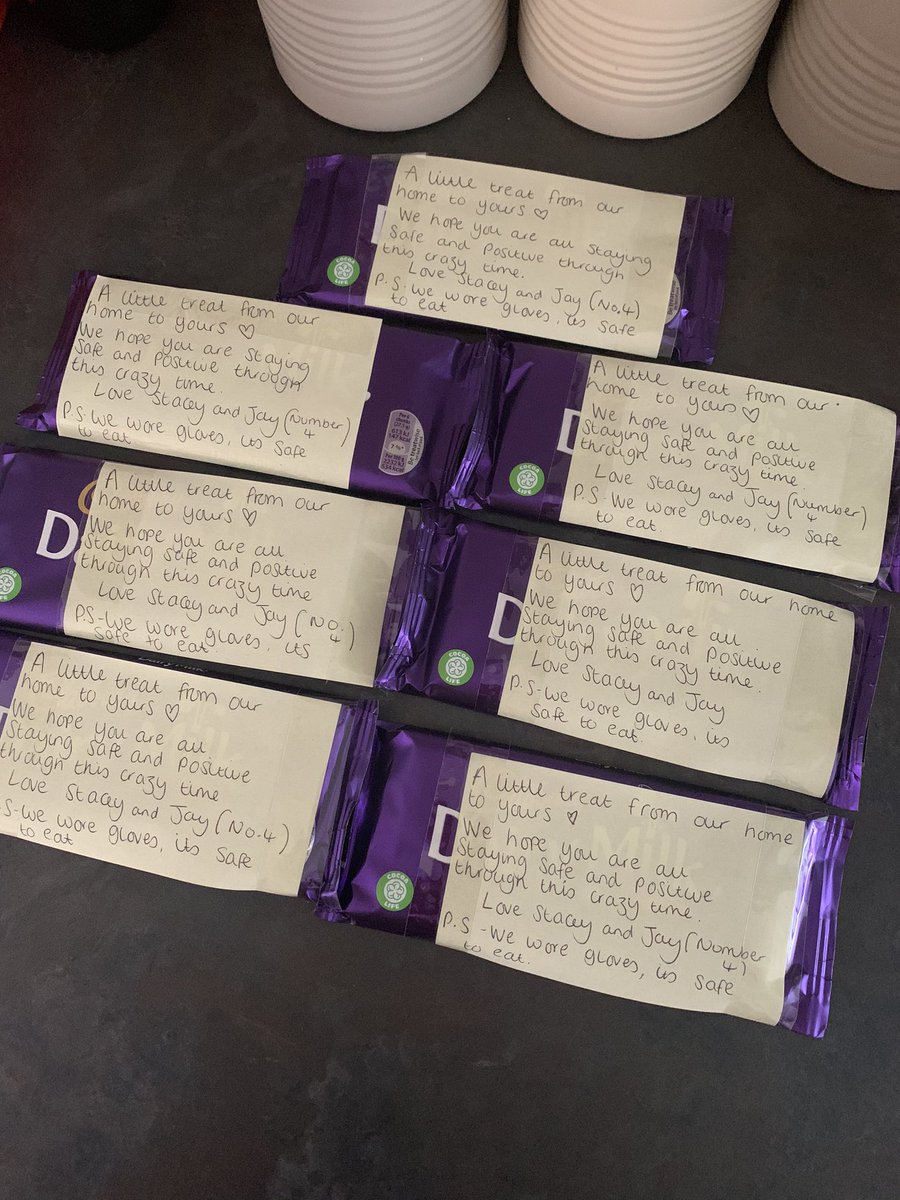 A little treat from our
home to yours ♡
We hope you are all staying
safe and positive through
this crazy time.
Love Stacey and Jay (No.4)
P.S-We wore gloves, its safe
to eat
COCOA
LIFE
A little treat from our
home to yours ♡
We hope you are staying
safe and positive through
this crazy time.
Love Stacey and Jay (Number
4)
P.S-We wore gloves, its safe
to eat.
Be treatwise
A little treat from our
home to yours ♡
We hope you are all
staying safe and positive
through this crazy time.
Love Stacey and Jay (Number
4)
P.S-We wore gloves, its safe
to eat.
D
COCOA
LIFE
A little treat from our
home to yours ♡
We hope you are all
staying safe and positive
through this crazy time
Love Stacey and Jay (No.
4)
P.S-We wore gloves, its
safe to eat.
D
A little treat from our home
to yours ♡
We hope you are all
staying safe and positive
through this crazy time.
Love Stacey and Jay
P.S-We wore gloves, its
safe to eat.
D
COCOA
LIFE
A little treat from our
home to yours ♡
We hope you are all
staying safe and positive
through this crazy time
Love Stacey and Jay (No.4)
S-We wore gloves, its safe
to eat
A little treat from our home
to yours ♡
We hope you are all
staying safe and positive
through this crazy time.
Love Stacey and Jay (Number
4)
P.S-We wore gloves, its safe
to eat.
D
Milk
COCOA
LIFE